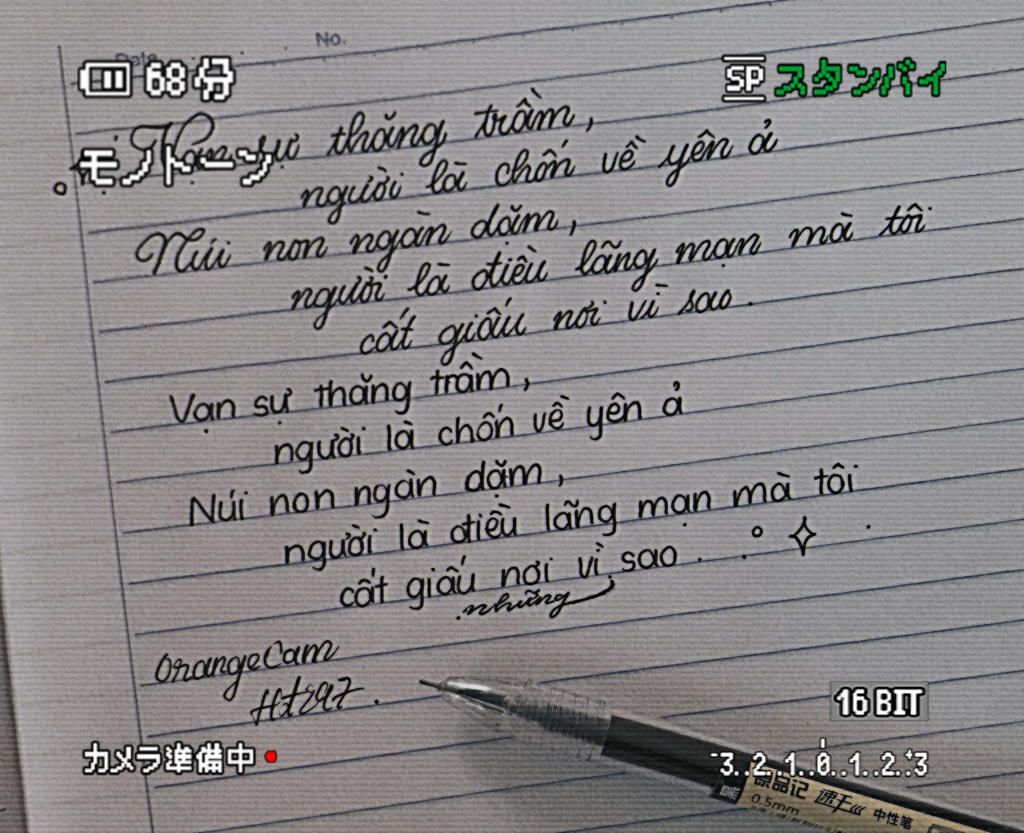 No.
Date
68分
SP スタンバイ
モノトーン
sự thăng trầm,
người là chốn về yên ả
Núi non ngàn dặm,
người là điều lãng mạn mà tôi
cất giấu nơi vì sao.
Vạn sự thăng trầm,
người là chốn về yên ả
Núi non ngàn dặm,
người là điều lãng mạn mà tôi
cất giấu nơi vì sao.
những
OrangeCam
Htr97.
16 BIT
カメラ準備中
-3..2..1..0..1..2..+3
品记 速干 中性笔
0.5mm